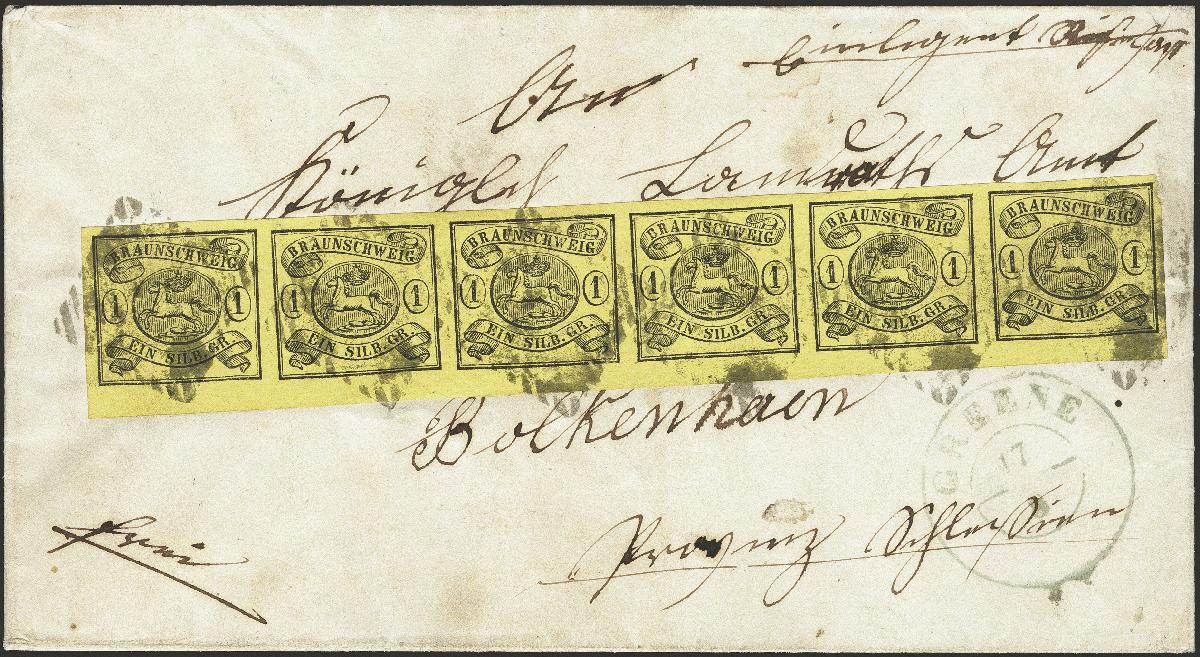 An
Königlch Landraths Amt
BRAUNSCHWEIG 1 1 EIN SILB. GR.
BRAUNSCHWEIG 1 1 EIN SILB. GR.
BRAUNSCHWEIG 1 1 EIN SILB. GR.
BRAUNSCHWEIG 1 1 EIN SILB. GR.
BRAUNSCHWEIG 1 1 EIN SILB. GR.
BRAUNSCHWEIG 1 1 EIN SILB. GR.
Bolkenhaen
GREENE
17
frei
Provinz Schlessien